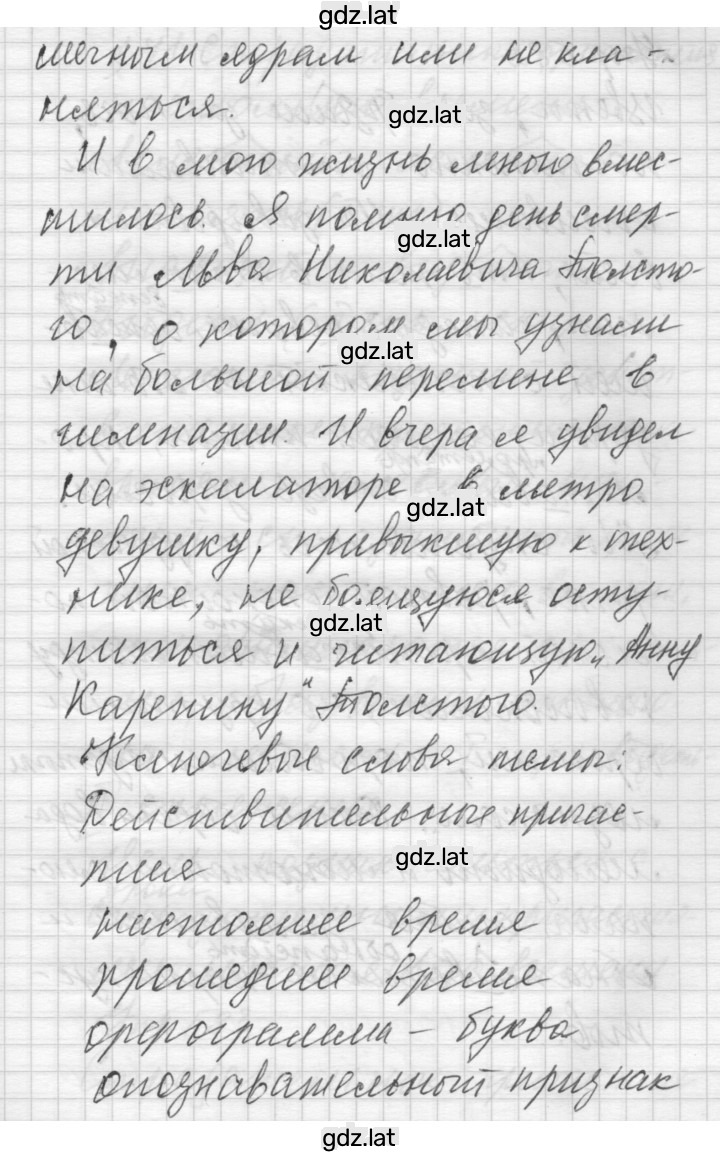 gdz.lat
шечным ядрам или не кла-
няться.
gdz.lat
И в мою жизнь много вмес-
тилось. Я помню день смер-
gdz.lat
ти Льва Николаевича Толсто-
го, о котором мы узнали
gdz.lat
на большой перемене в
гимназии. И вчера я увидел
на эскалаторе в метро
gdz.lat
девушку, привыкшую к тех-
нике, не боящуюся осту-
gdz.lat
питься и читающую „Анну
Каренину“ Толстого.
Ключевые слова темы:
Действительные причас-
тия
gdz.lat
настоящее время
прошедшее время
орфограмма – буква
опознавательный признак
gdz.lat